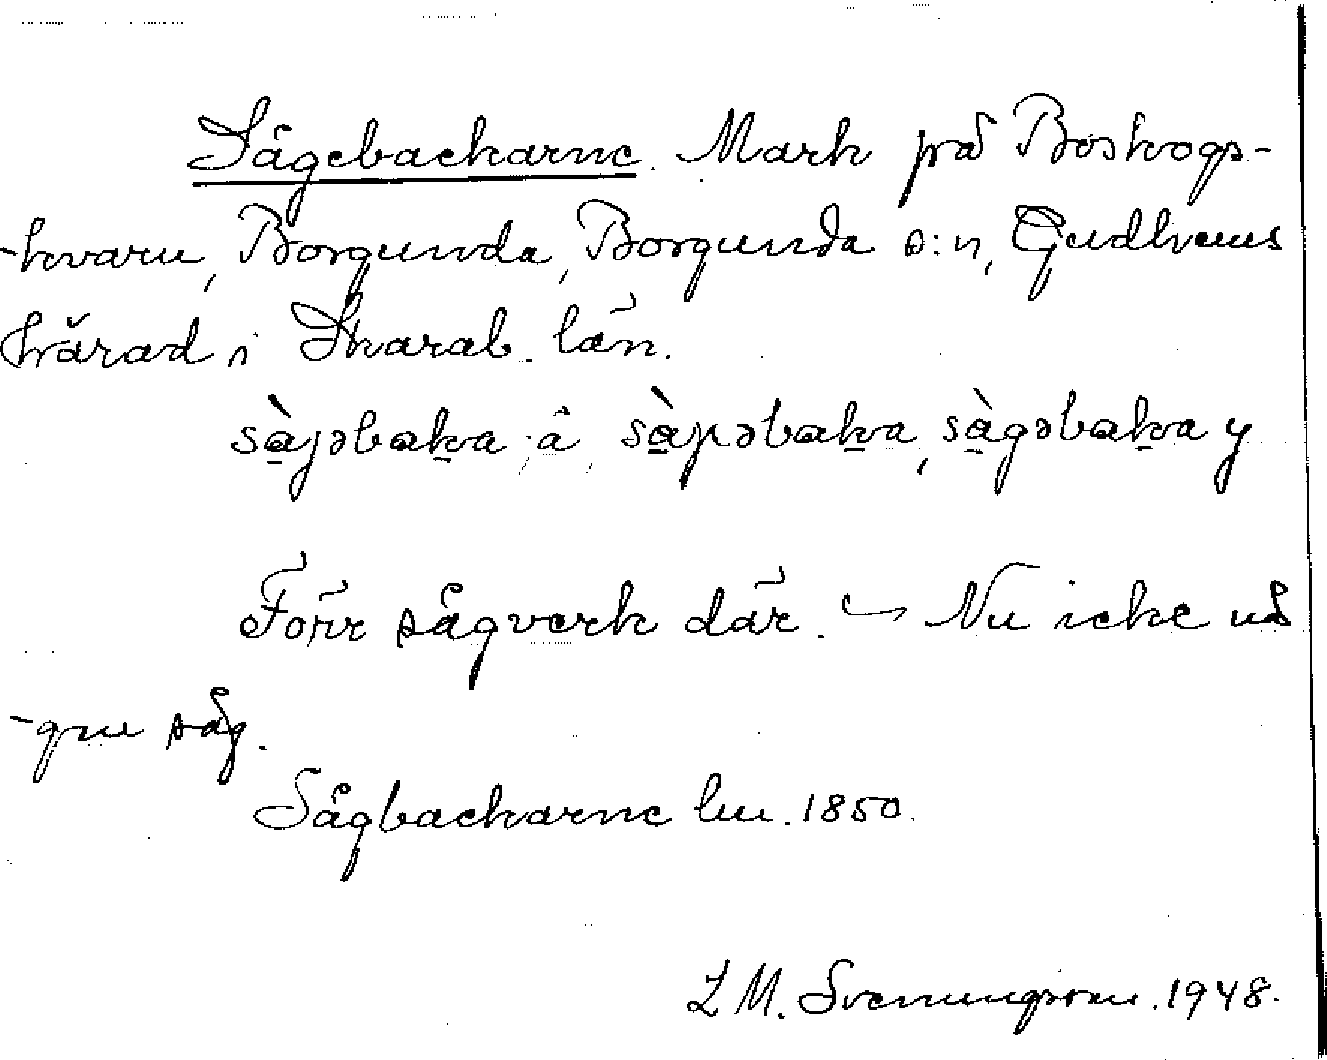 Sågebackarne. Mark på Boskogs-
-kvarn, Borgunda, Borgunda s:n, Gudhems
härad i Skarab. län.
sàjəbaka, â, sàpəbaka, sàgəbaka y
Förr sågverk där. Nu icke nå
-gon såg.
Sågbackarne lm. 1850.
L M. Svenungsson. 1948.